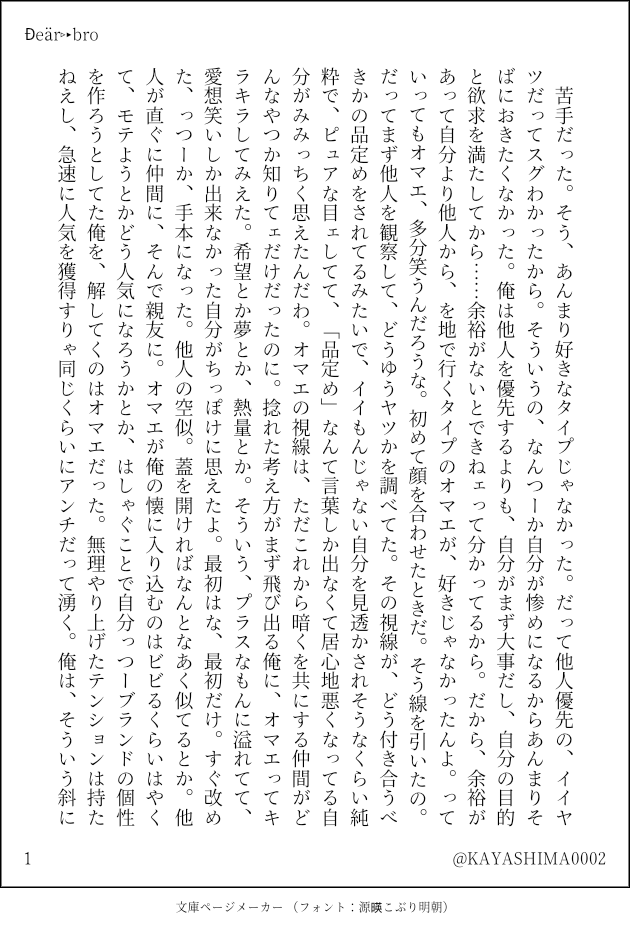 Ðeär➳bro
　苦手だった。そう、あんまり好きなタイプじゃなかった。だって他人優先の、イイヤ
ツだってスグわかったから。そういうの、なんつーか自分が惨めになるからあんまりそ
ばにおきたくなかった。俺は他人を優先するよりも、自分がまず大事だし、自分の目的
と欲求を満たしてから……余裕がないとできねェって分かってるから。だから、余裕が
あって自分より他人から、を地で行くタイプのオマエが、好きじゃなかったんよ。って
いってもオマエ、多分笑うんだろうな。初めて顔を合わせたときだ。そう線を引いたの。
だってまず他人を観察して、どうゆうヤツかを調べてた。その視線が、どう付き合うべ
きかの品定めをされてるみたいで、イイもんじゃない自分を見透かされそうなくらい純
粋で、ピュアな目ェしてて、「品定め」なんて言葉しか出なくて居心地悪くなってる自
分がみみっちく思えたんだわ。オマエの視線は、ただこれから暗くを共にする仲間がど
んなやつか知りてェだけだったのに。捻れた考え方がまず飛び出る俺に、オマエってキ
ラキラしてみえた。希望とか夢とか、熱量とか。そういう、プラスなもんに溢れてて、
愛想笑いしか出来なかった自分がちっぽけに思えたよ。最初はな、最初だけ。すぐ改め
た、っつーか、手本になった。他人の空似。蓋を開ければなんとなあく似てるとか。他
人が直ぐに仲間に、そんで親友に。オマエが俺の懐に入り込むのはビビるくらいはやく
て、モテようとかどう人気になろうかとか、はしゃぐことで自分っつーブランドの個性
を作ろうとしてた俺を、解してくのはオマエだった。無理やり上げたテンションは持た
ねえし、急速に人気を獲得すりゃ同じくらいにアンチだって湧く。俺は、そういう斜に
1
@KAYASHIMA0002
文庫ページメーカー（フォント：源暎こぶり明朝）